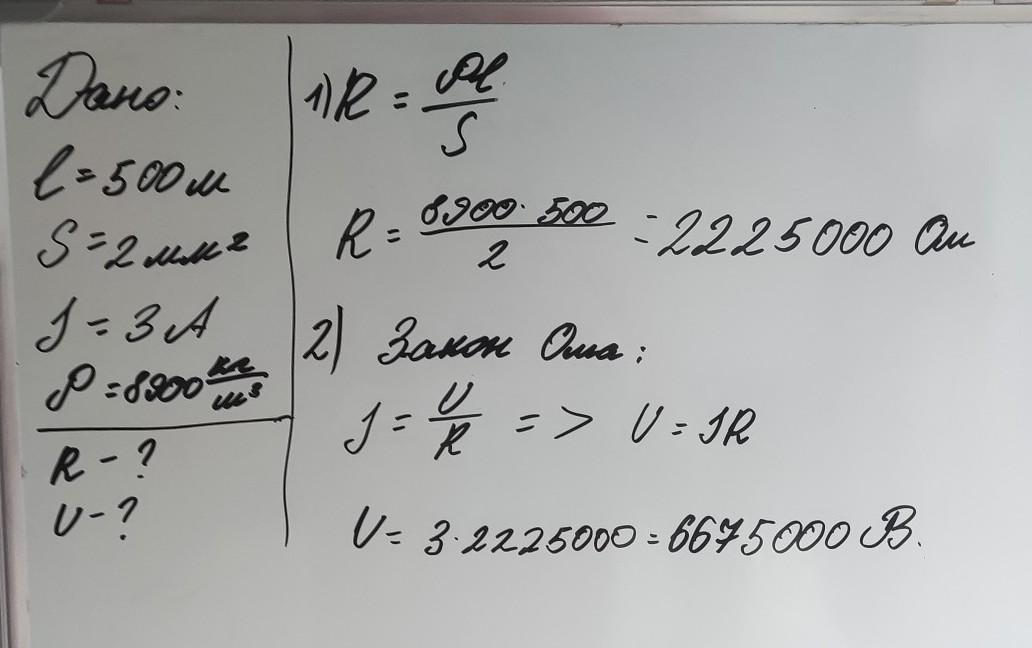 Дано:
l = 500 м
S = 2 мм²
J = 3 А
ρ = 8900 кг/м³
R - ?
U - ?
1) R = ρl/S
R = 8900 · 500/2 = 2225000 Ом
2) Закон Ома:
J = U/R => U = JR
U = 3 · 2225000 = 6675000 В.